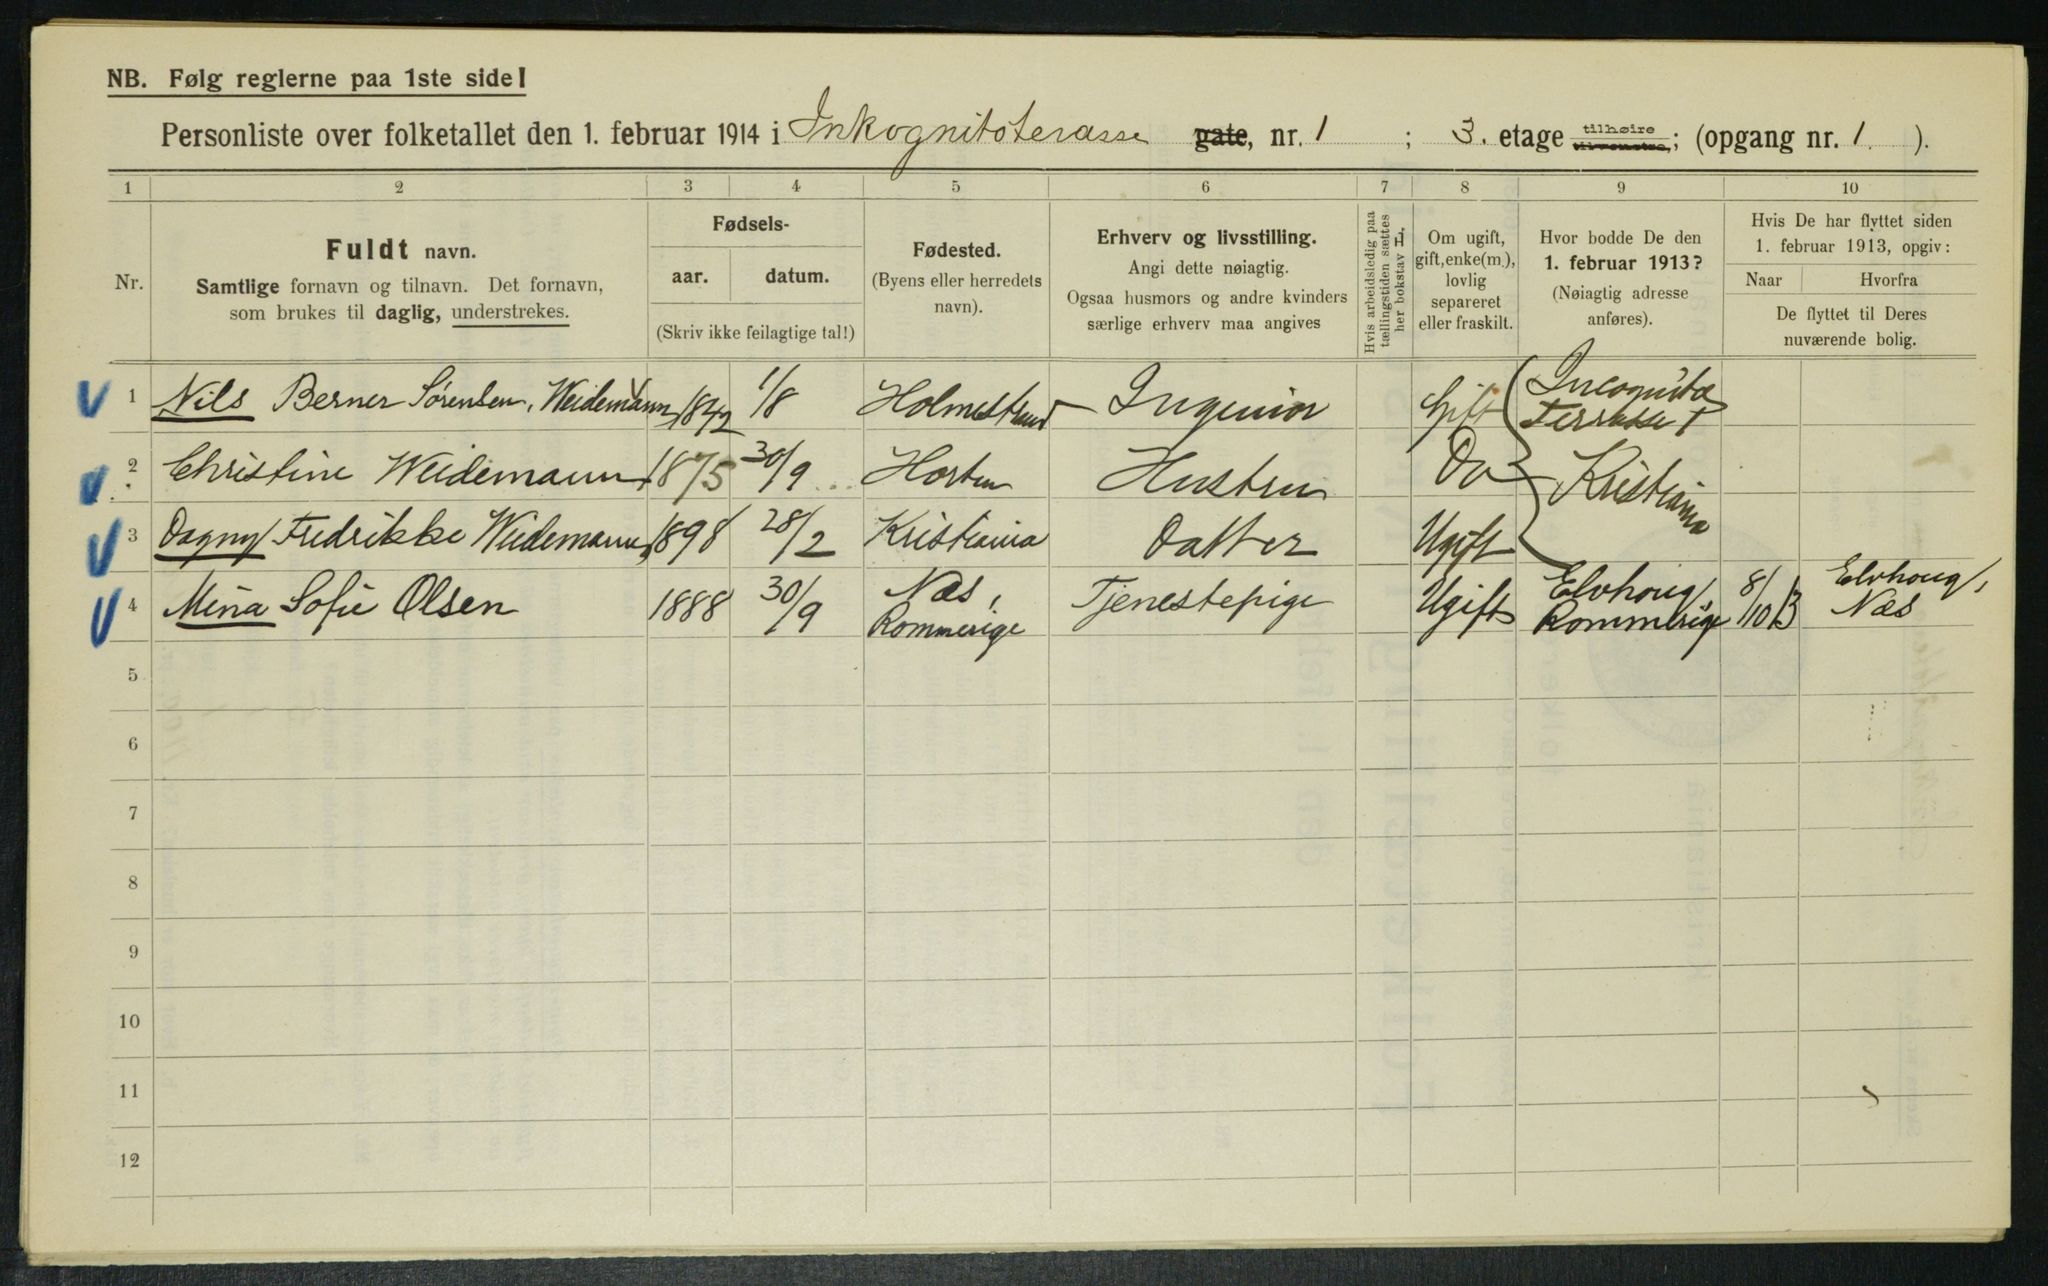 NB. Følg reglerne paa 1ste side!
Personliste over folketallet den 1. februar 1914 i Inkognitoterasse gate, nr. 1 ; 3. etage tilhøire tilvenstre; (opgang nr. 1. ).
1 2 3 4 5 6 7 8 9 10
Nr.
Fuldt navn.
Samtlige fornavn og tilnavn. Det fornavn,
som brukes til daglig, understrekes.
Fødsels-
aar. datum.
(Skriv ikke feilagtige tal!)
Fødested.
(Byens eller herredets
navn).
Erhverv og livsstilling.
Angi dette nøiagtig.
Ogsaa husmors og andre kvinders
særlige erhverv maa angives
Hvis arbeidsledig paa
tællingstiden sættes
her bokstav L.
Om ugift,
gift, enke(m.),
lovlig
separeret
eller fraskilt.
Hvor bodde De den
1. februar 1913?
(Nøiagtig adresse
anføres).
Hvis De har flyttet siden
1. februar 1913, opgiv:
Naar Hvorfra
De flyttet til Deres
nuværende bolig.
1 Nils Berner Sørensen, Weidemann 1842 1/8 Holmestrand Ingeniør Gift Incognito Terrasse 1
2 Christine Weidemann 1875 30/9 Horten Hustru Do Kristiania
3 Dagny Fredrikke Weidemann 1898 28/2 Kristiania Datter Ugift
4 Mina Sofie Olsen 1888 30/9 Næs, Rommerige Tjenestepige Ugift Elvhoug, Rommerige 8/10 13 Elvhoug, Næs
5
6
7
8
9
10
11
12